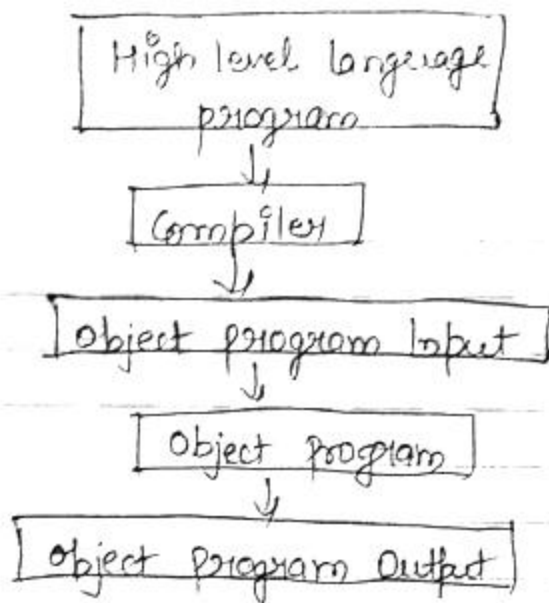 High level language
program
Compiler
Object program Input
Object program
Object program Output